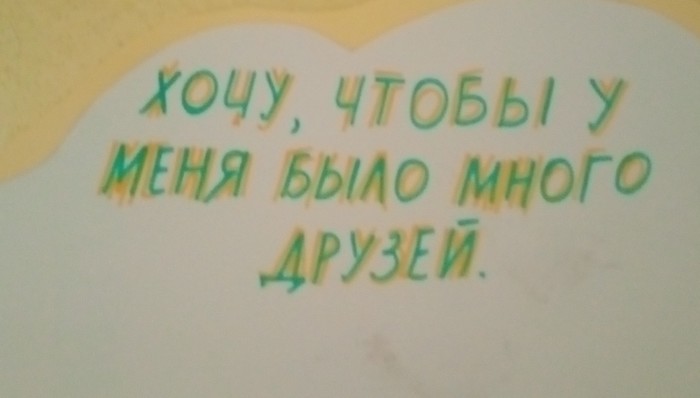 ХОЧУ, ЧТОБЫ У
МЕНЯ БЫЛО МНОГО
ДРУЗЕЙ.